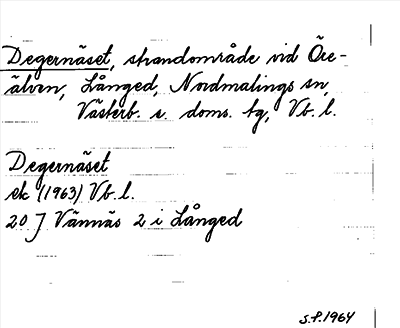 Degernäset, strandområde vid Öre-
älven, Långed, Nordmalings sn,
Västerb. s. doms. tg, Vb. l.
Degernäset
ek (1963) Vb. l.
20 J Vännäs 2 i Långed
S.F. 1964